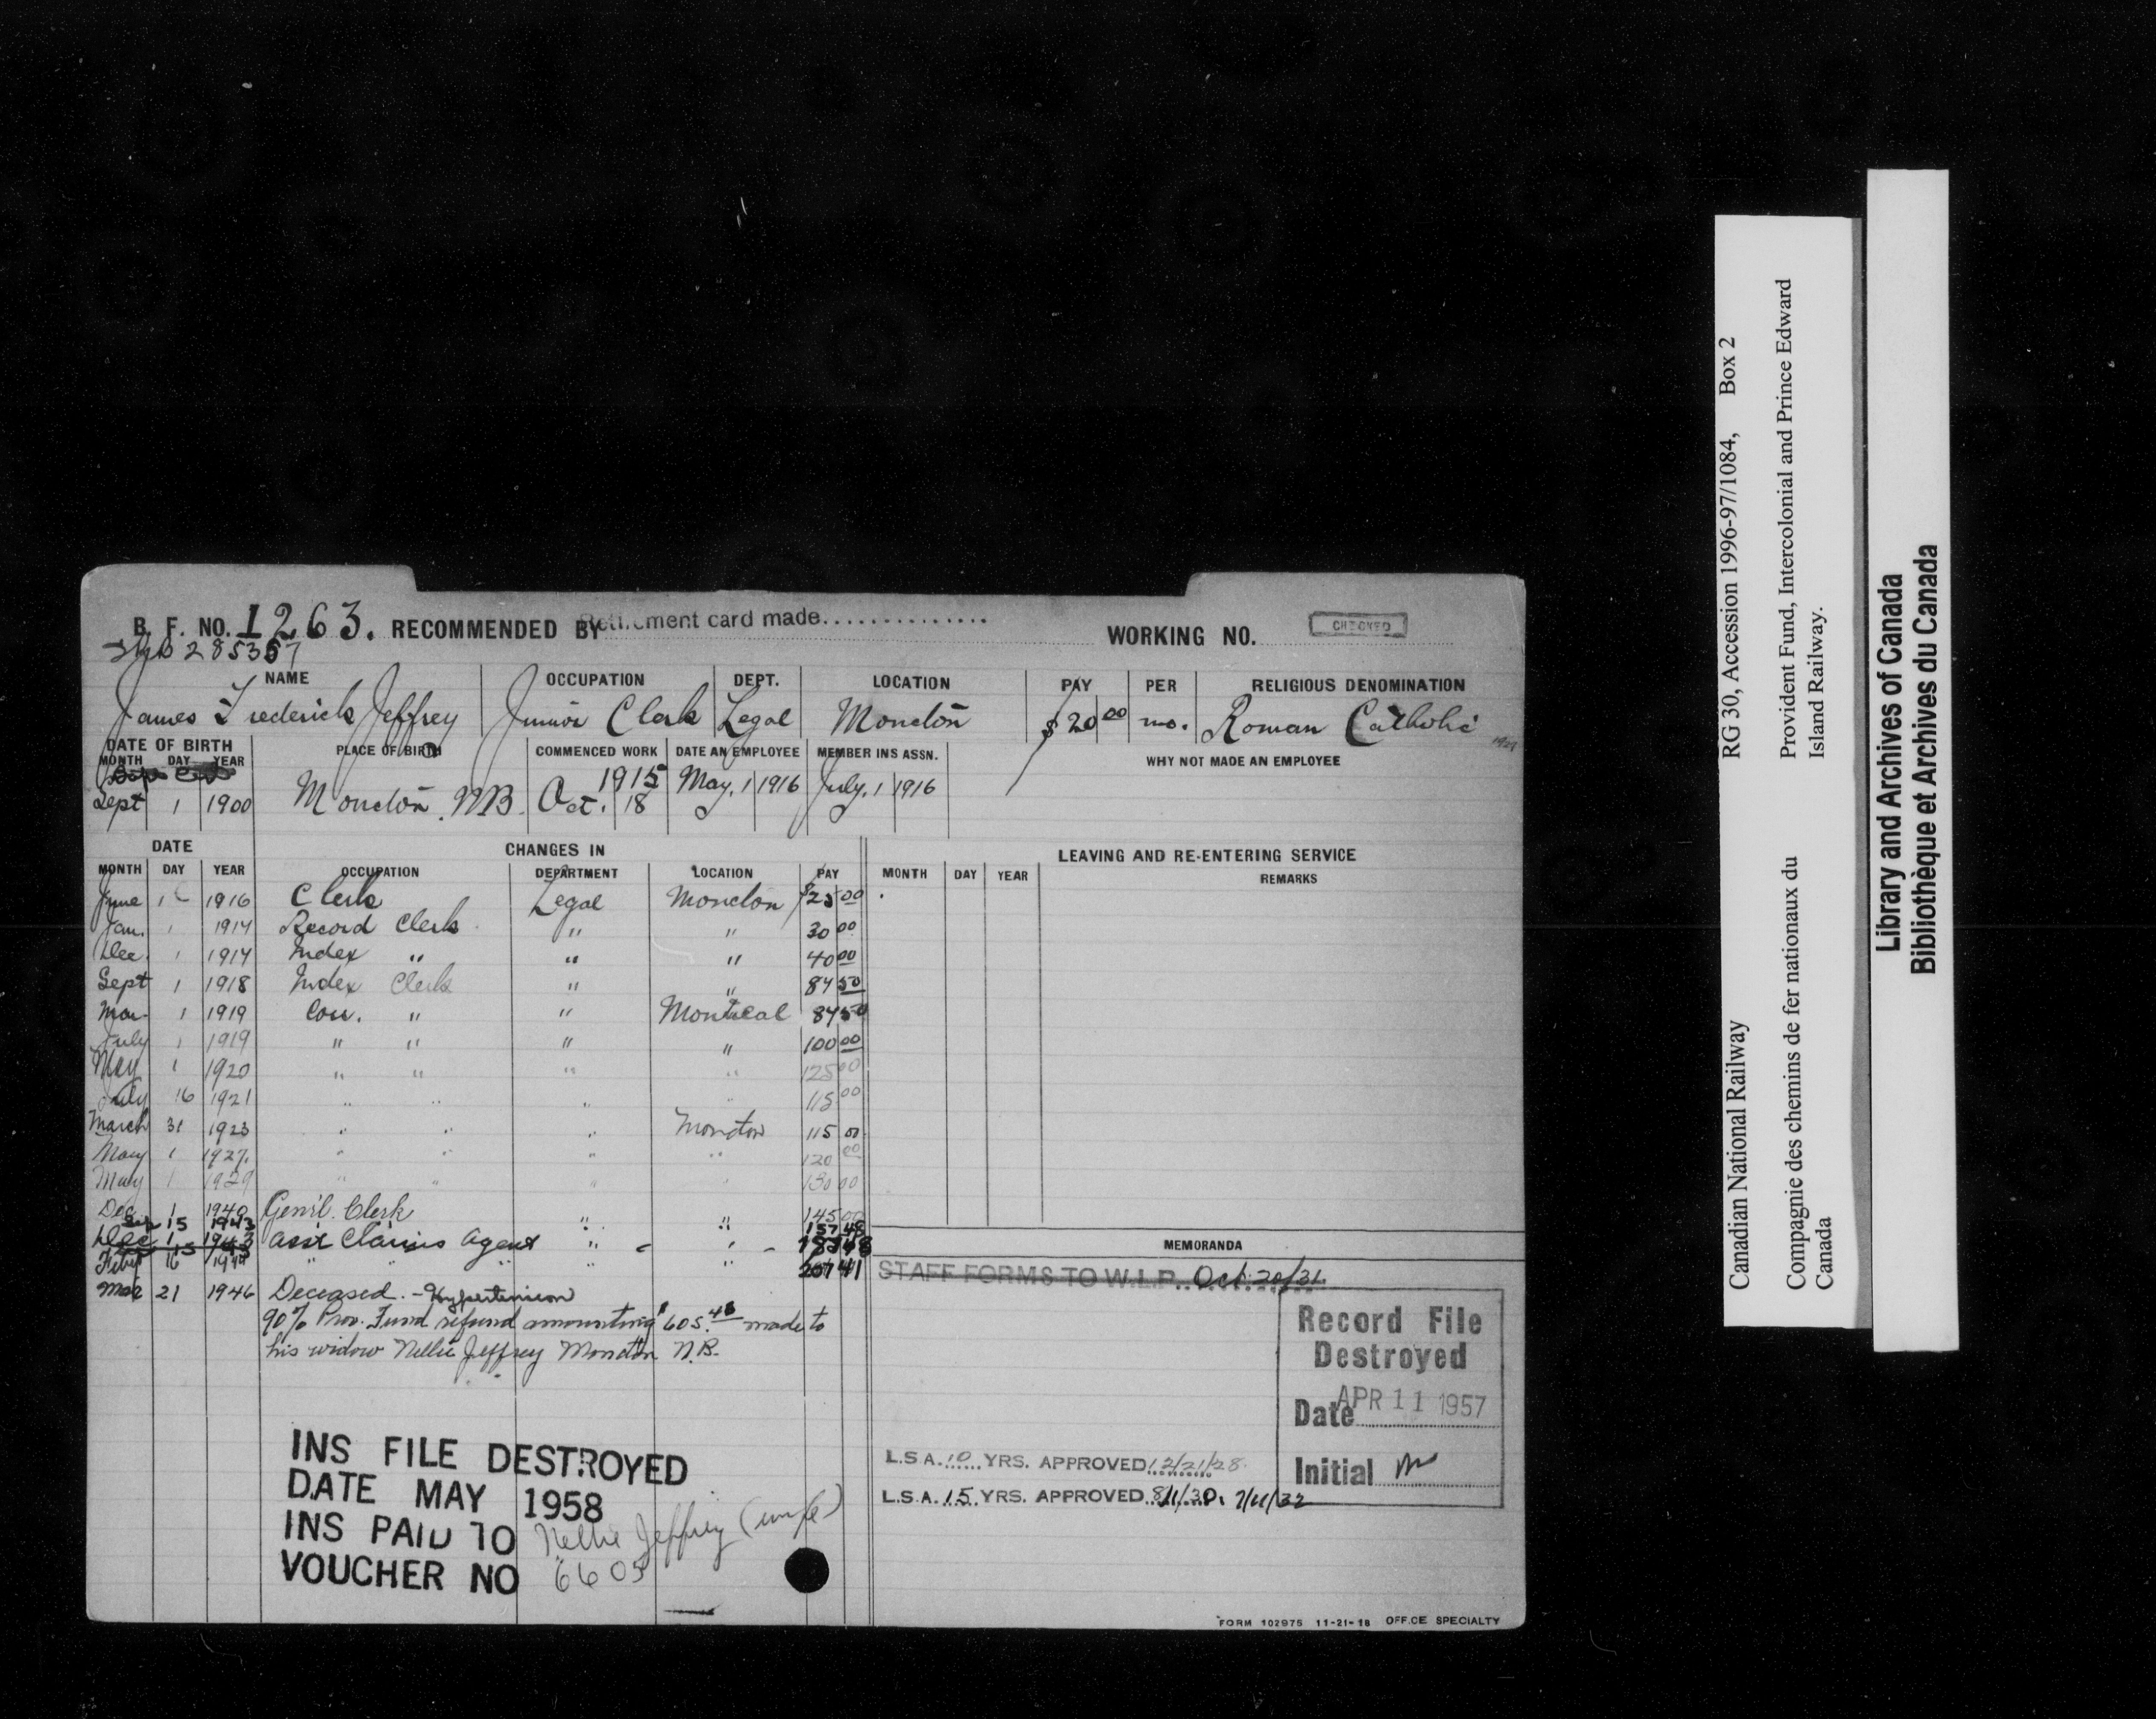 B. F. NO. 1263. RECOMMENDED BY Retirement card made............... WORKING NO. CHECKED
285357
NAME OCCUPATION DEPT. LOCATION PAY PER RELIGIOUS DENOMINATION
James Frederick Jeffrey Junior Clerk Legal Moncton $20 00 mo. Roman Catholic
DATE OF BIRTH PLACE OF BIRTH COMMENCED WORK DATE AN EMPLOYEE MEMBER INS ASSN. WHY NOT MADE AN EMPLOYEE
MONTH DAY YEAR
Sept 1 1900 Moncton N.B. Oct. 18 1915 May. 1 1916 July. 1 1916
DATE CHANGES IN LEAVING AND RE-ENTERING SERVICE
MONTH DAY YEAR OCCUPATION DEPARTMENT LOCATION PAY MONTH DAY YEAR REMARKS
June 1 1916 Clerk Legal Moncton $25 00
Jan. 1 1917 Record Clerk " " 30 00
Dec. 1 1917 Index " " " 40 00
Sept 1 1918 Index Clerk " " 87 50
Mar. 1 1919 Corr. " " Montreal 87 50
July 1 1919 " " " " 100 00
May 1 1920 " " " " 125 00
July 16 1921 " " " " 115 00
March 31 1923 " " " Moncton 115 00
May 1 1927. " " " " 120 00
May 1 1929 " " " " 130 00
Dec 1 1940 Gen'l. Clerk " " 145 00
15 1943 157 48
Dec 1 1943 Ass't Claims Agent " "
Feby 16 1944 " " " " 207 41
Mar 21 1946 Deceased. - Hypertension
90% Prov. Fund refund amounting $605.48 made to
his widow Nellie Jeffrey Moncton N.B.
MEMORANDA
STAFF FORMS TO W.I.P. Oct 20/31
Record File
Destroyed
Date APR 11 1957
Initial
L.S.A. 10 YRS. APPROVED 12/21/28.
L.S.A. 15 YRS. APPROVED 8/1/30. 7/11/32
INS FILE DESTROYED
DATE MAY 1958
INS PAID TO Nellie Jeffrey (wife)
VOUCHER NO 6605
FORM 102975 11-21-18 OFFICE SPECIALTY
Canadian National Railway RG 30, Accession 1996-97/1084, Box 2
Compagnie des chemins de fer nationaux du Canada
Provident Fund, Intercolonial and Prince Edward Island Railway.
Library and Archives of Canada
Bibliothèque et Archives du Canada